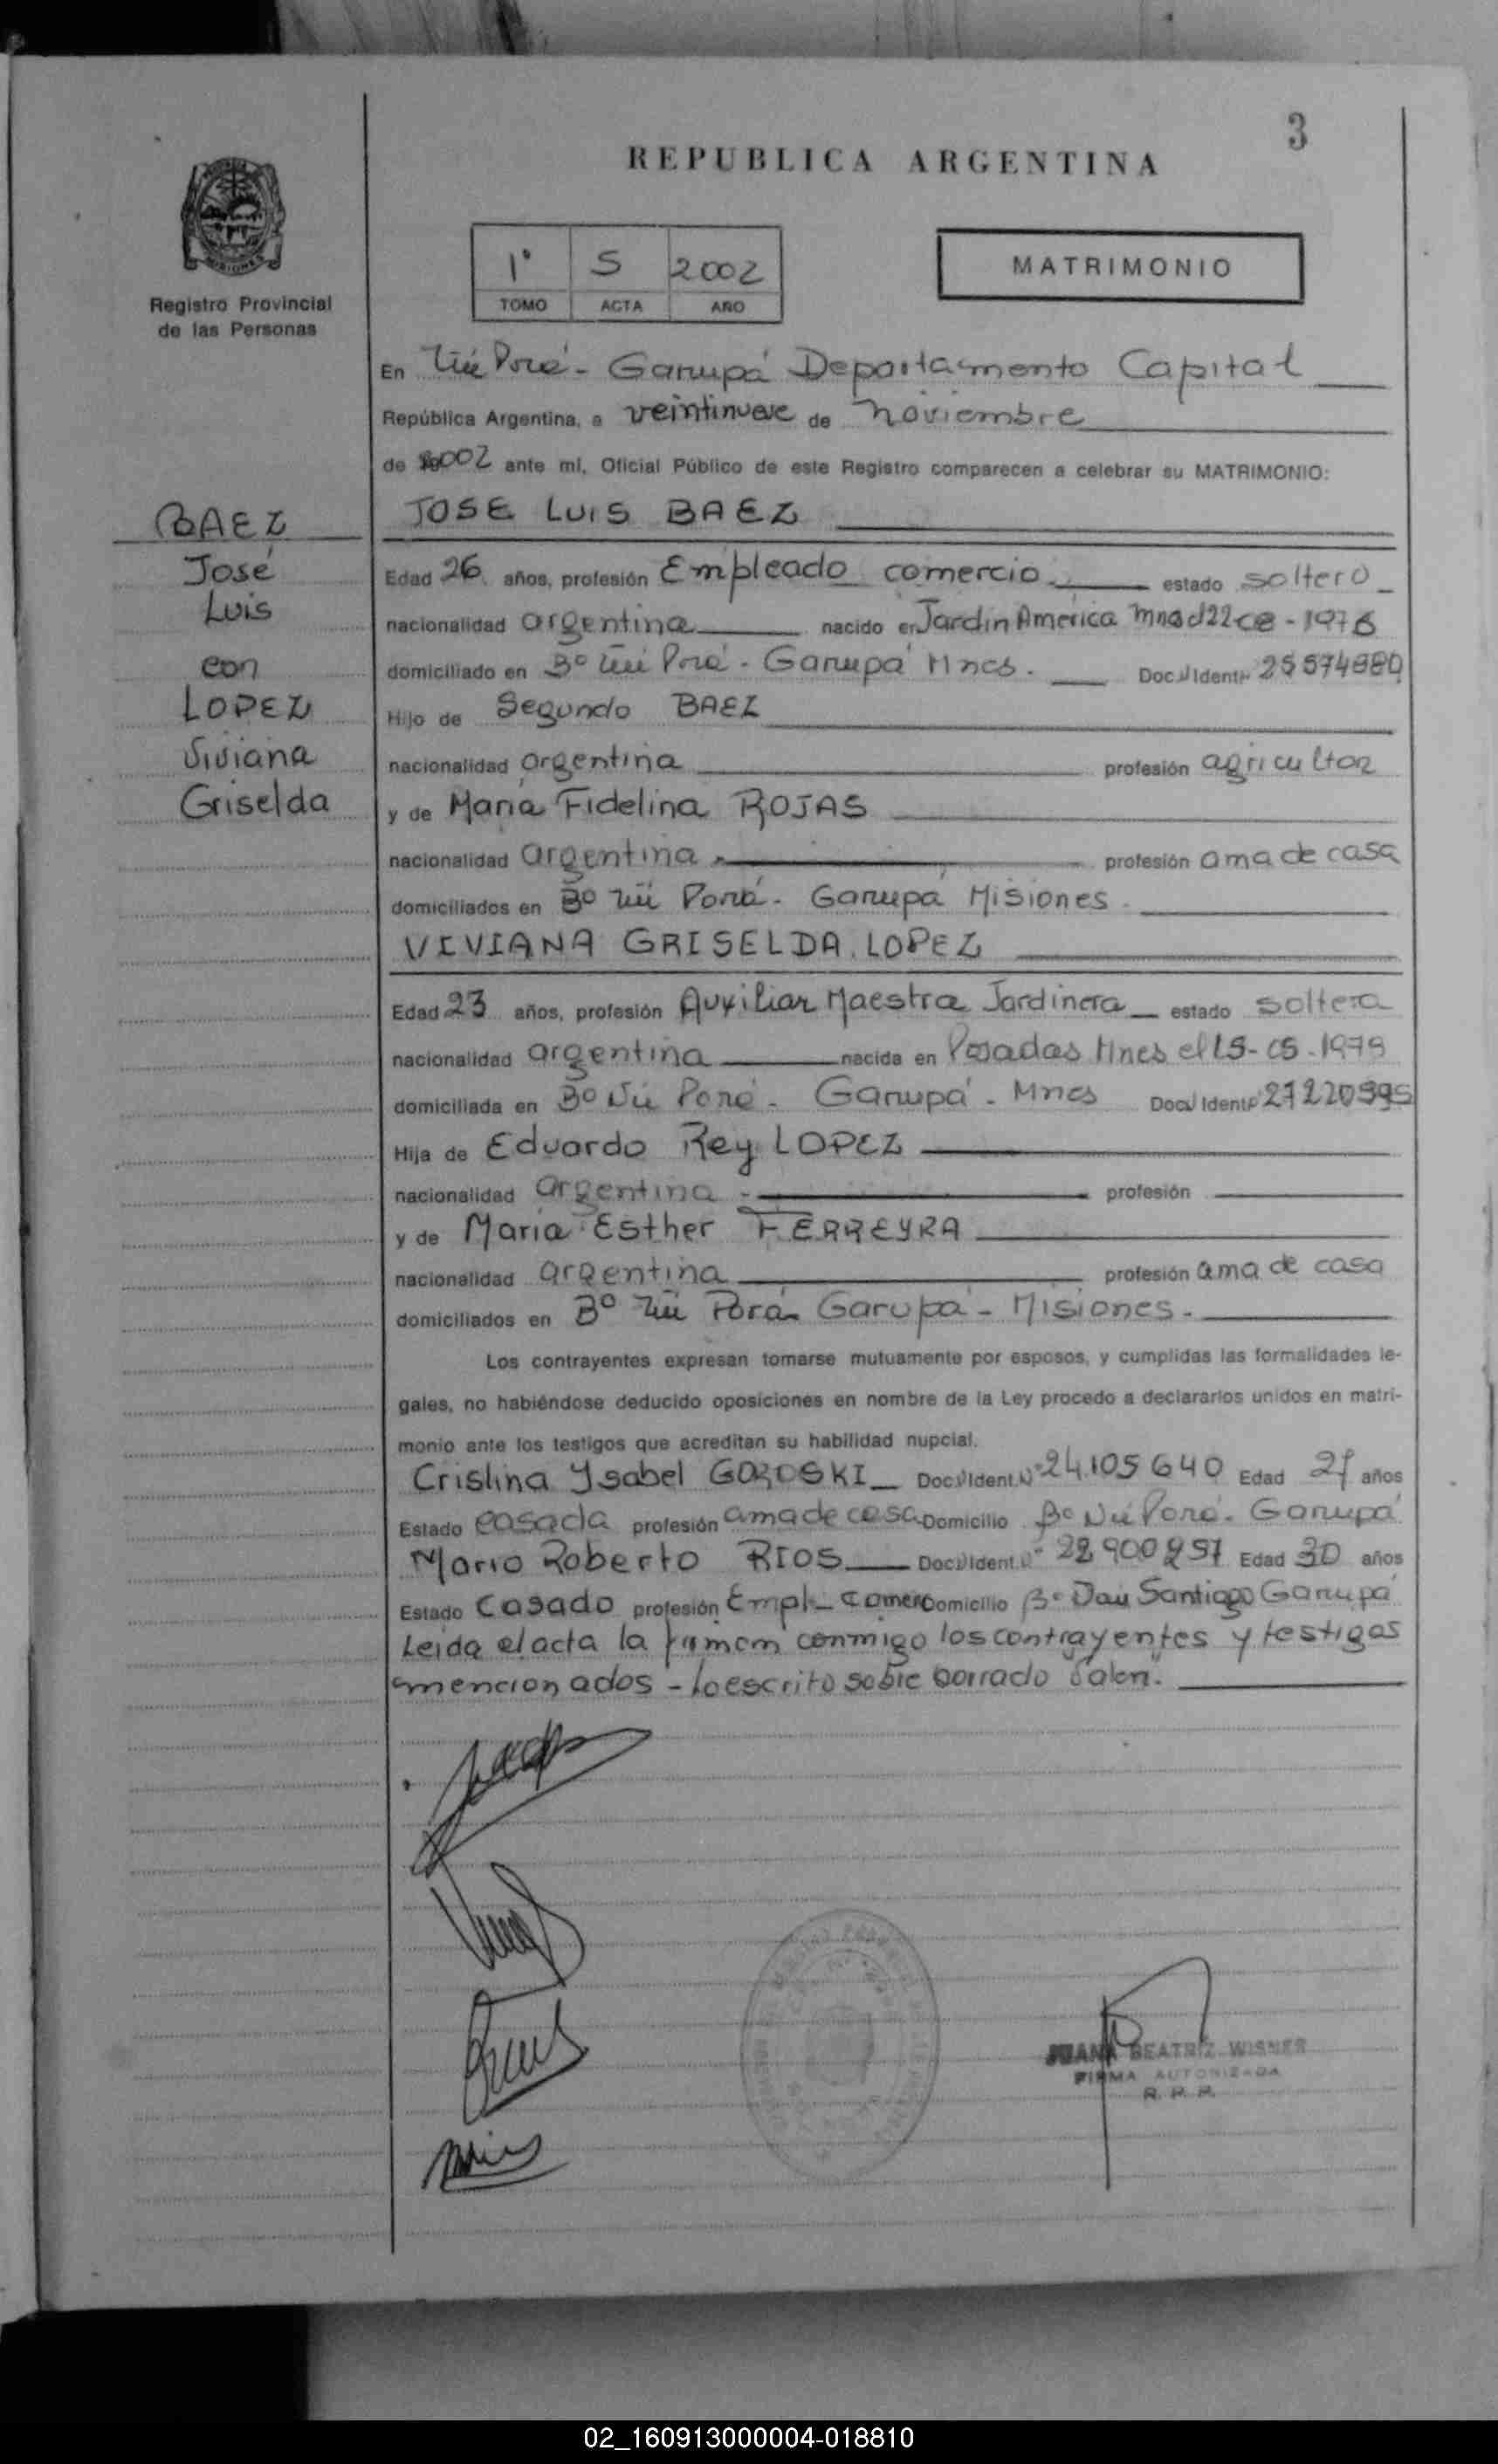 3
REPUBLICA ARGENTINA
MISIONES
Registro Provincial
de las Personas
1° 5 2002
TOMO ACTA AÑO
MATRIMONIO
En Ñú Porá - Garupá Departamento Capital
República Argentina, a veintinueve de noviembre
de 2002 ante mí, Oficial Público de este Registro comparecen a celebrar su MATRIMONIO:
BAEZ
José
Luis
con
LOPEZ
Viviana
Griselda
JOSE LUIS BAEZ
Edad 26 años, profesión Empleado comercio estado soltero
nacionalidad argentina nacido en Jardin America Mnes el 22-08-1976
domiciliado en B° Ñú Porá - Garupá Mnes. Doc. Ident. 25574880
Hijo de Segundo BAEZ
nacionalidad argentina profesión agricultor
y de Maria Fidelina ROJAS
nacionalidad argentina profesión ama de casa
domiciliados en B° Ñú Porá - Garupá Misiones.
VIVIANA GRISELDA LOPEZ
Edad 23 años, profesión Auxiliar Maestra Jardinera estado soltera
nacionalidad argentina nacida en Posadas Mnes el 15-05-1979
domiciliada en B° Ñú Porá - Garupá - Mnes Doc. Ident. 27220395
Hija de Eduardo Rey LOPEZ
nacionalidad argentina profesión
y de Maria Esther FERREYRA
nacionalidad argentina profesión ama de casa
domiciliados en B° Ñú Porá Garupá - Misiones.
Los contrayentes expresan tomarse mutuamente por esposos, y cumplidas las formalidades le-
gales, no habiéndose deducido oposiciones en nombre de la Ley procedo a declararlos unidos en matri-
monio ante los testigos que acreditan su habilidad nupcial.
Cristina Ysabel GOROSKI Doc. Ident. N° 24.105640 Edad 27 años
Estado casada profesión ama de casa Domicilio B° Ñú Porá - Garupá
Mario Roberto RIOS Doc. Ident. N° 22900257 Edad 30 años
Estado Casado profesión Empl. comer Domicilio B° Santiago Garupá
Leida el acta la firman conmigo los contrayentes y testigos
mencionados - Lo escrito sobre borrado Valen.
JUANA BEATRIZ WISNER
FIRMA AUTORIZADA
R. P. P.
02_160913000004-018810